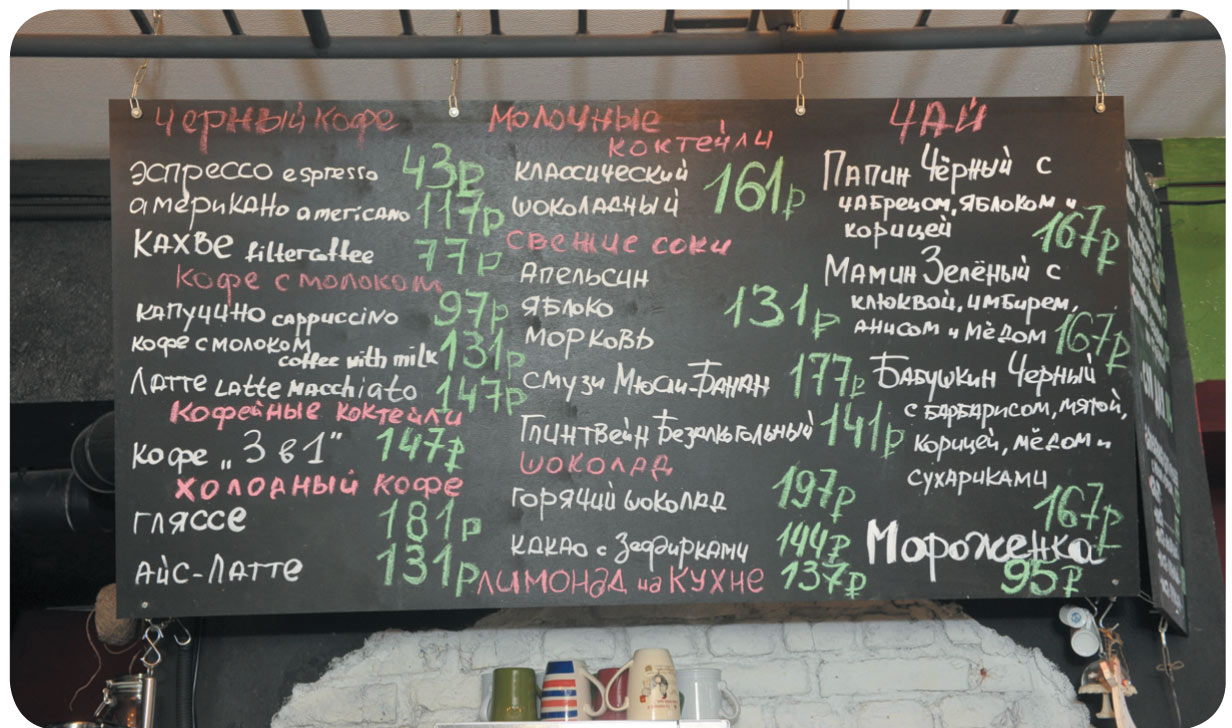 Черный кофе
эспрессо espresso 43₽
американо americano 117₽
Кахве filtercoffee 77₽
Кофе с молоком
капучино cappuccino 97₽
кофе с молоком
coffee with milk 131₽
Латте Latte Macchiato 147₽
Кофейные коктейли
Кофе „3 в 1“ 147₽
Холодный кофе
гляссе 181₽
Айс-Латте 131₽
Молочные
коктейли
классический
шоколадный 161₽
свежие соки
Апельсин
Яблоко 131₽
морковь
смузи Мюсли-Банан 177₽
Глинтвейн Безалкогольный 141₽
Шоколад
горячий шоколад 197₽
какао с Зефирками 144₽
Лимонад на Кухне 137₽
Чай
Папин Чёрный с
чабрецом, яблоком и
корицей 167₽
Мамин Зелёный с
клюквой, имбирем,
анисом и мёдом 167₽
Бабушкин Черный
с барбарисом, мятой,
корицей, мёдом и
сухариками
167₽
Мороженка
95₽